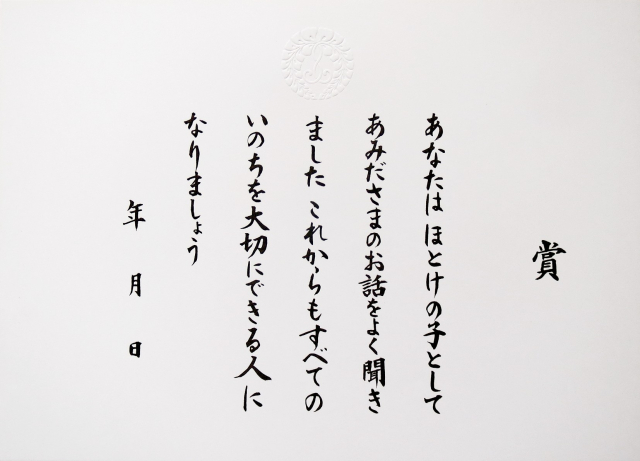 賞
あなたは ほとけの子として
あみださまのお話をよく聞き
ました これからもすべての
いのちを大切にできる人に
なりましょう
年 月 日